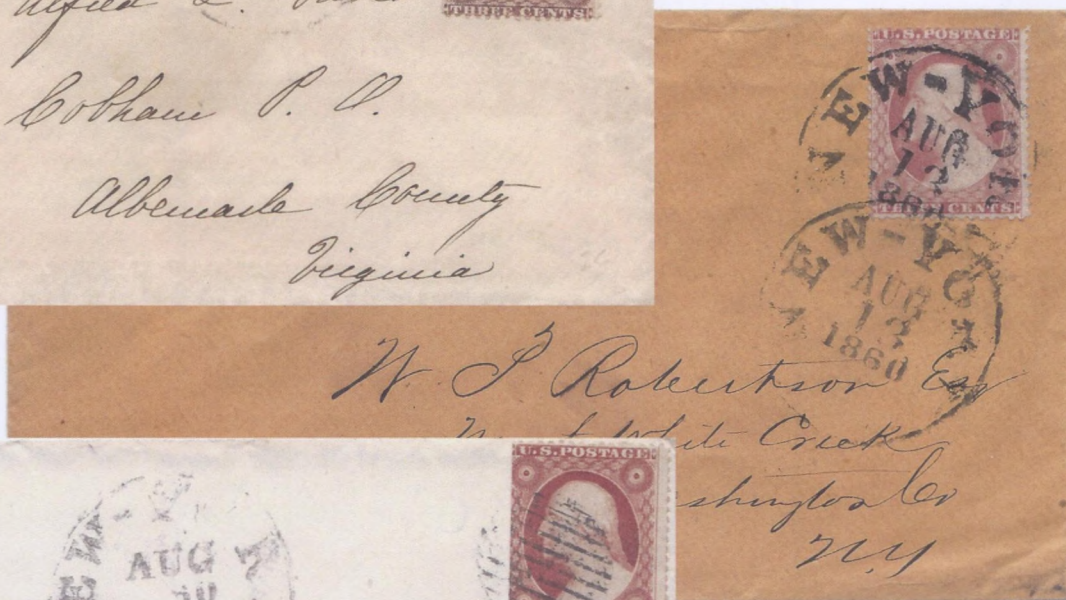 THREE CENTS
Cobham P. O.
Albemarle County
Virginia
U.S. POSTAGE
NEW-YORK
AUG
13
1860
THREE CENTS
NEW-YORK
AUG
13
1860
W. P. Robertson Esq
White Creek
shington Co
N.Y
U.S. POSTAGE
AUG